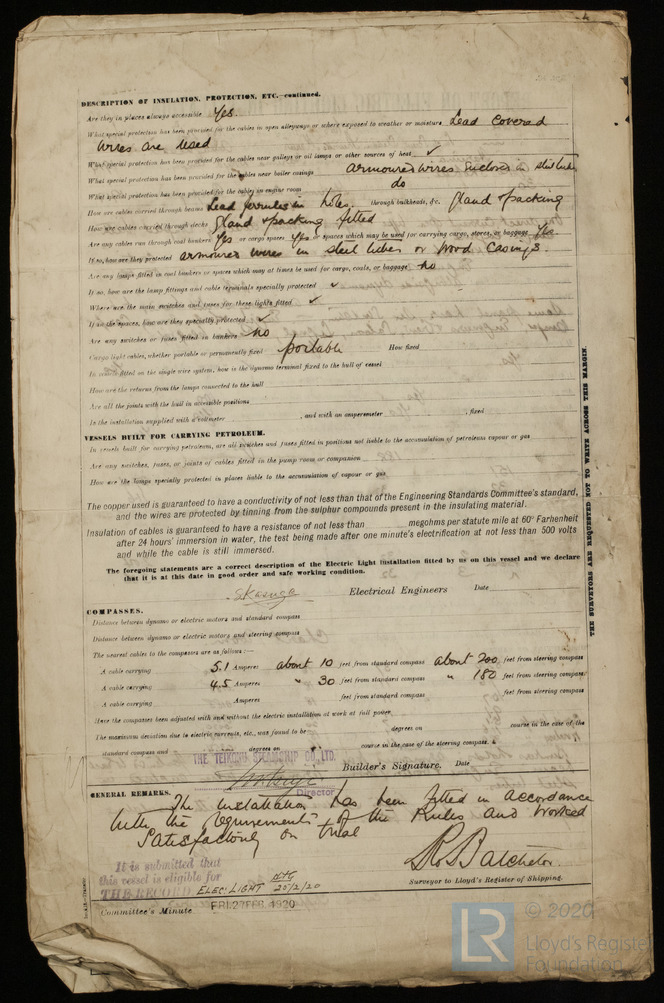 DESCRIPTION OF INSULATION, PROTECTION, ETC.—continued.
Are they in places always accessible Yes.
What special protection has been provided for the cables in open alleyways or where exposed to weather or moisture Lead covered
wires are used
What special protection has been provided for the cables near galleys or oil lamps or other sources of heat ✓
What special protection has been provided for the cables near boiler casings armoured wires enclosed in steel tubes
What special protection has been provided for the cables in engine room do
How are cables carried through beams Lead ferrules in holes. through bulkheads, &c. Gland & packing
How are cables carried through decks Gland & packing fitted
Are any cables run through coal bunkers Yes or cargo spaces Yes or spaces which may be used for carrying cargo, stores, or baggage Yes
If so, how are they protected armoured wires in steel tubes or wood casings
Are any lamps fitted in coal bunkers or spaces which may at times be used for cargo, coals, or baggage no
If so, how are the lamp fittings and cable terminals specially protected ✓
Where are the main switches and fuses for these lights fitted ✓
If in the spaces, how are they specially protected ✓
Are any switches or fuses fitted in bunkers no
Cargo light cables, whether portable or permanently fixed portable How fixed
In vessels fitted on the single wire system, how is the dynamo terminal fixed to the hull of vessel
How are the returns from the lamps connected to the hull
Are all the joints with the hull in accessible positions
Is the installation supplied with a voltmeter , and with an amperemeter , fixed
VESSELS BUILT FOR CARRYING PETROLEUM.
In vessels built for carrying petroleum, are all switches and fuses fitted in positions not liable to the accumulation of petroleum vapour or gas
Are any switches, fuses, or joints of cables fitted in the pump room or companion
How are the lamps specially protected in places liable to the accumulation of vapour or gas
The copper used is guaranteed to have a conductivity of not less than that of the Engineering Standards Committee's standard,
and the wires are protected by tinning from the sulphur compounds present in the insulating material.
Insulation of cables is guaranteed to have a resistance of not less than megohms per statute mile at 60° Farhenheit
after 24 hours' immersion in water, the test being made after one minute's electrification at not less than 500 volts
and while the cable is still immersed.
The foregoing statements are a correct description of the Electric Light Installation fitted by us on this vessel and we declare
that it is at this date in good order and safe working condition.
Electrical Engineers Date
COMPASSES.
Distance between dynamo or electric motors and standard compass
Distance between dynamo or electric motors and steering compass
The nearest cables to the compasses are as follows:—
A cable carrying 5.1 Amperes about 10 feet from standard compass about 200 feet from steering compass
A cable carrying 4.5 Amperes " 30 feet from standard compass " 180 feet from steering compass
A cable carrying Amperes feet from standard compass feet from steering compass
Have the compasses been adjusted with and without the electric installation at work at full power
The maximum deviation due to electric currents, etc., was found to be degrees on course in the case of the
standard compass and degrees on course in the case of the steering compass.
THE TEIKOKU STEAMSHIP CO., LTD.
Builder's Signature. Date
Director
GENERAL REMARKS.
The installation has been fitted in accordance
with the requirements of the Rules and worked
satisfactorily on trial
It is submitted that
this vessel is eligible for
THE RECORD. ELEC. LIGHT 20/2/20
R. S. Batchelor.
Surveyor to Lloyd's Register of Shipping.
Committee's Minute FRI. 27 FEB. 1920
THE SURVEYORS ARE REQUESTED NOT TO WRITE ACROSS THIS MARGIN.
LR
© 2020
Lloyd's Register
Foundation